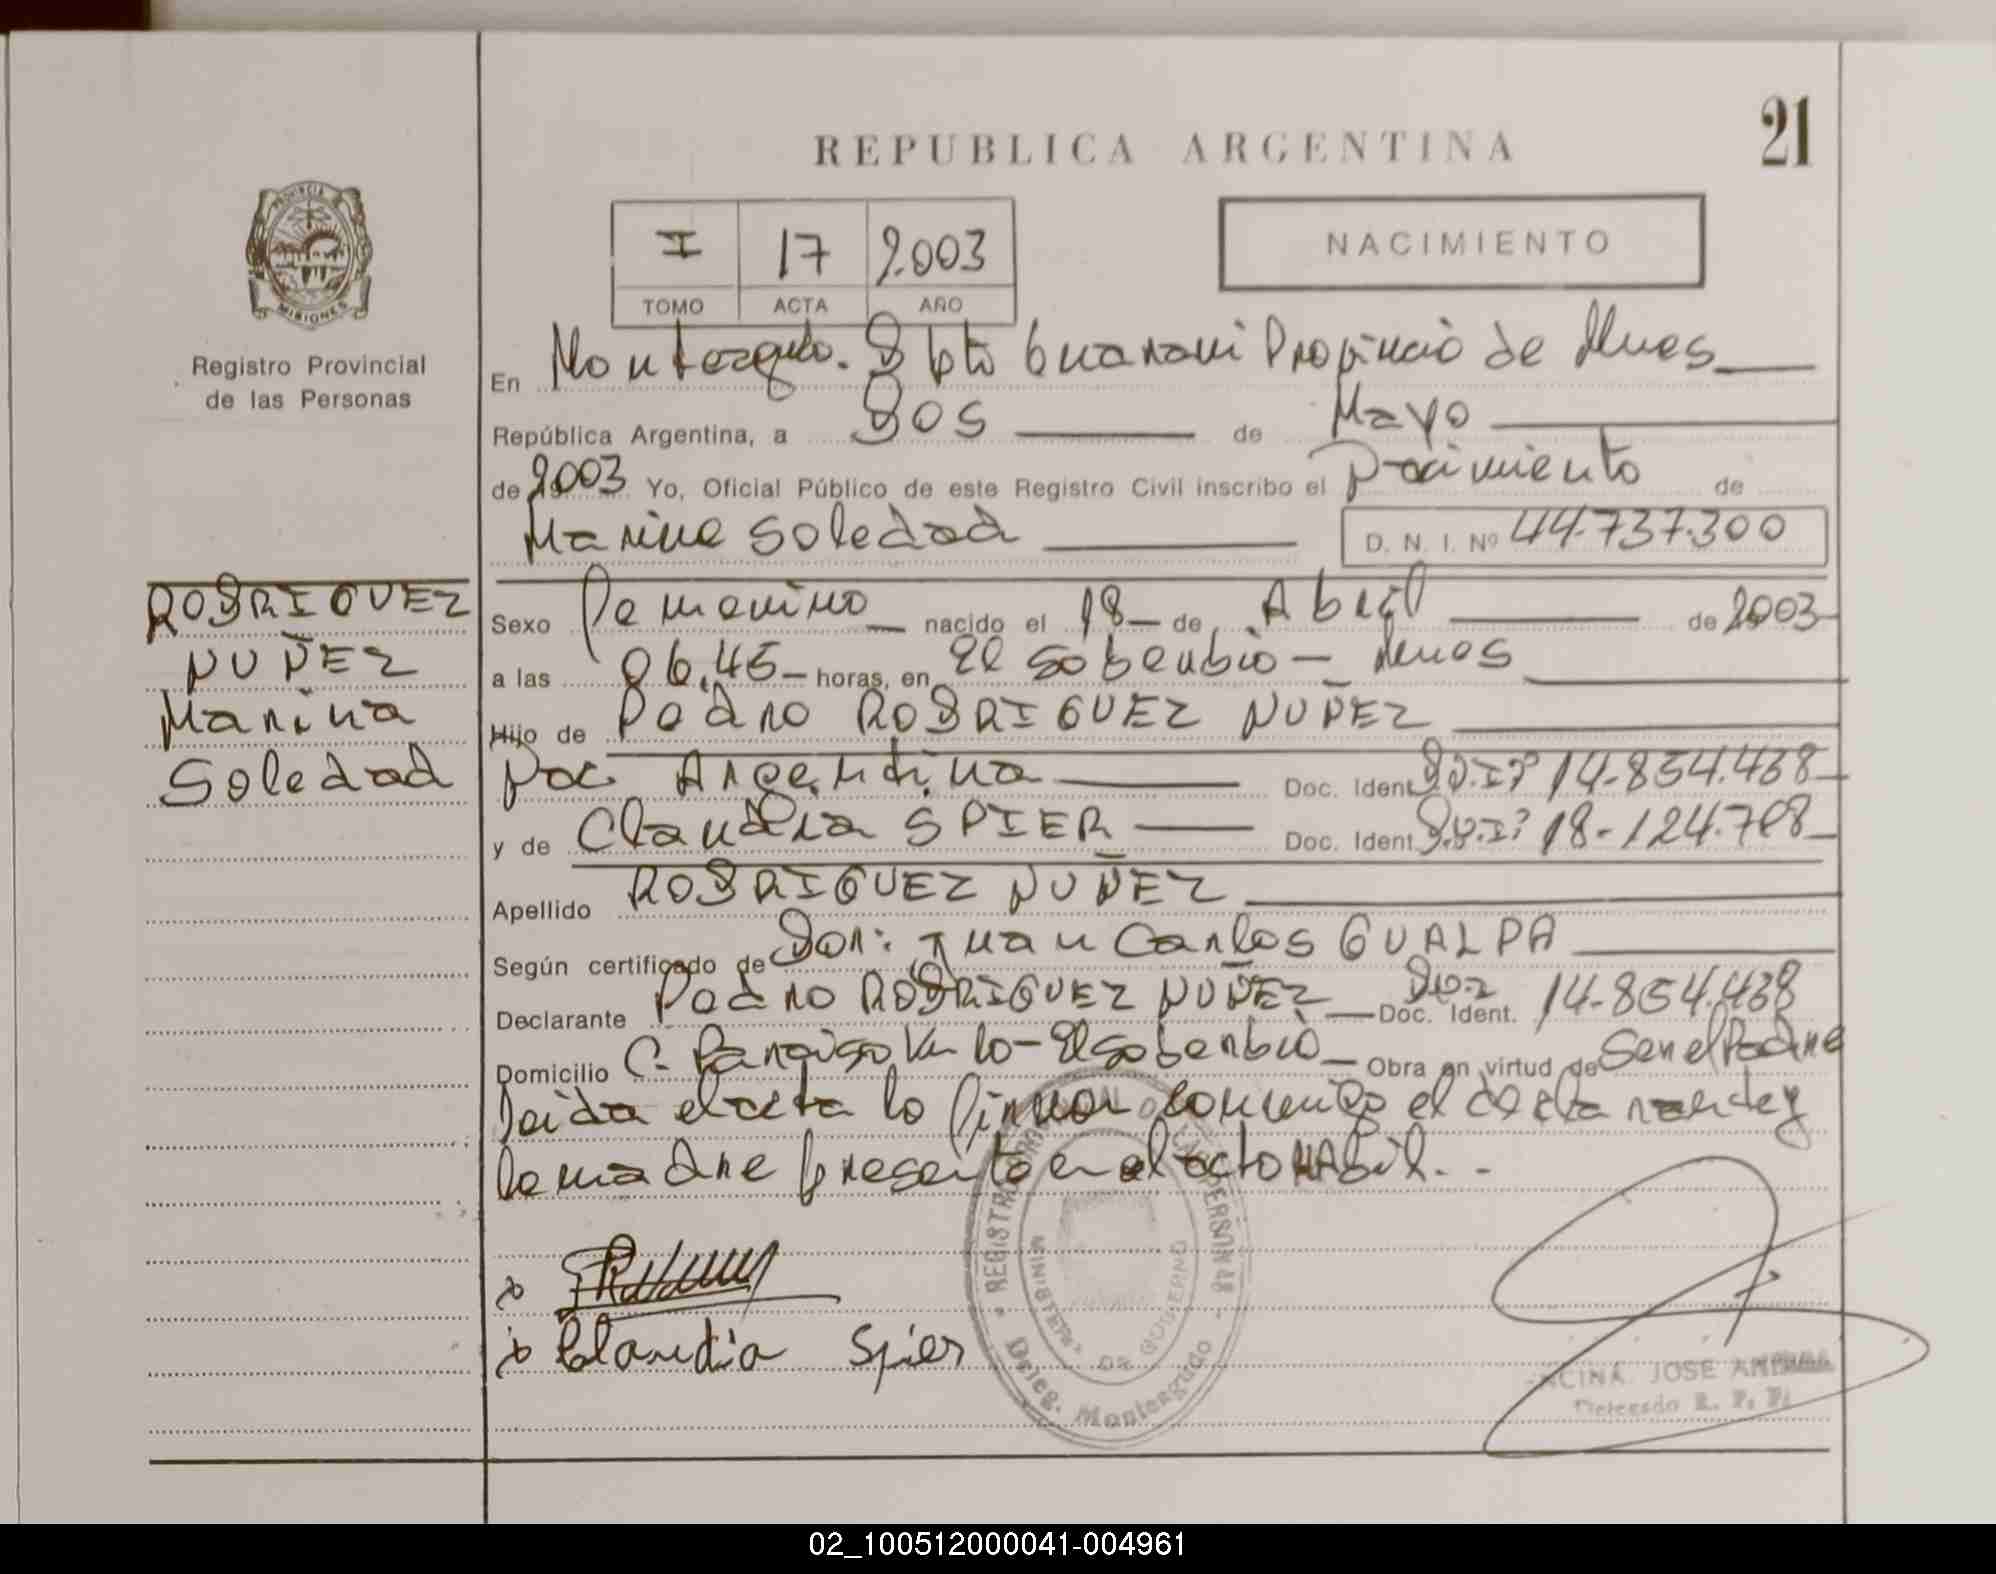 21
REPUBLICA ARGENTINA
PROVINCIA DE
MISIONES
Registro Provincial
de las Personas
I 17 2003
TOMO ACTA AÑO
NACIMIENTO
En Monteagudo. Dpto Guarani Provincia de Mnes
República Argentina, a Dos de Mayo
de 2003 Yo, Oficial Público de este Registro Civil inscribo el Nacimiento de
Marina Soledad D. N. I. Nº 44.737.300
RODRIGUEZ
NUÑEZ
Marina
Soledad
Sexo Femenino nacido el 18 de Abril de 2003
a las 06,45 horas, en El Soberbio - Mnes
Hijo de Pedro RODRIGUEZ NUÑEZ
Nac. Argentina Doc. Ident. D.N.I: 14.854.438
y de Claudia SPIER Doc. Ident. D.N.I: 18.124.768
Apellido RODRIGUEZ NUÑEZ
Según certificado de Don: Juan Carlos GUALPA
Declarante Pedro RODRIGUEZ NUÑEZ Doc. Ident. 14.854.438
Domicilio C. Paraiso - El Soberbio Obra en virtud de Ser el Padre
Leida el acta la firman conmigo el declarante y
la madre presente en el acto
Claudia Spier
REGISTRO PERSONAS
MINISTERIO DE GOBIERNO
Deleg. Monteagudo
JOSE
Delegado R. P. P.
02_100512000041-004961